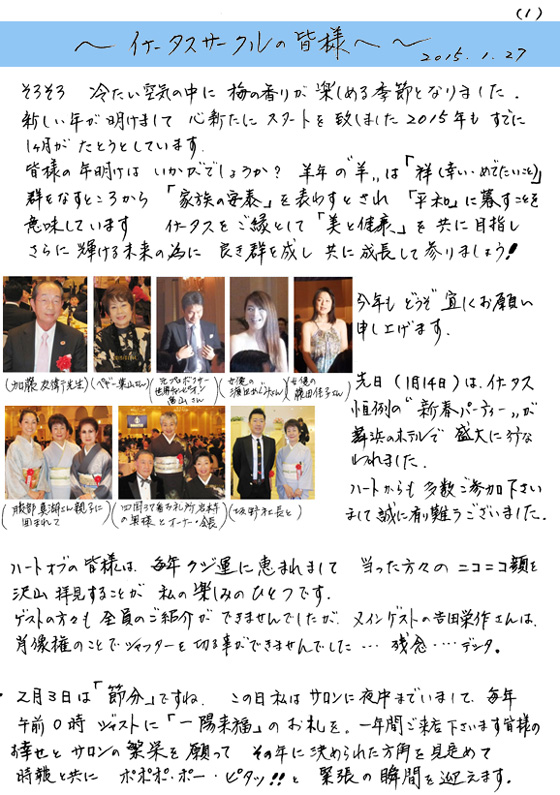 (1)
～イタースサークルの皆様へ～
2015.1.27
そろそろ 冷たい空気の中に 梅の香りが 楽しめる季節となりました.
新しい年が明けまして 心新たに スタートを 致しました2015年も すでに
1ヶ月が たとうとしています.
皆様の年明けは いかがでしょうか? 羊年の"羊"は「祥(幸い・めでたいこと)」
群をなすところから 「家族の安泰」を表わすとされ 「平和」に暮すことを
意味しています イタースをご縁として「美と健康」を 共に目指し
さらに輝ける未来の為に 良き群を成し 共に成長して参りましょう!
今年も どうぞ 宜しくお願い
申し上げます.
(加藤 先生)
(ペギー葉山さん)
(元プロボクサー
世界チャンピオン
畑山さん)
(女優の さん)
(女優の 佳子さん)
先日 (1月14日) は、イタース
恒例の"新春パーティー"が
舞浜のホテルで 盛大に行な
われました.
ハートからも 多数ご参加下さい
まして 誠に有難うございました.
(服部真湖さん親子に
囲まれて)
(四国37番お札所岩本寺
の奥様とオーナー・会長)
(坂野社長と)
ハートオブの皆様は、毎年クジ運に恵まれまして 当った方々の ニコニコ顔を
沢山 拝見することが 私の楽しみのひとつです.
ゲストの方々も 全員のご紹介が できませんでしたが、メインゲストの吉田栄作さんは、
肖像権のことで シャッターを切る事ができませんでした… 残念….デシタ.
・2月3日は「節分」ですね. この日私は サロンに夜中までいまして、毎年
午前0時 ジャストに「一陽来福」の お札を、一年間ご来店下さいます皆様の
お幸せと サロンの繁栄を 願って その年に決められた方角を見定めて
時報と共に ポポポ・ポー・ピタッ!!と 緊張の瞬間を迎えます.